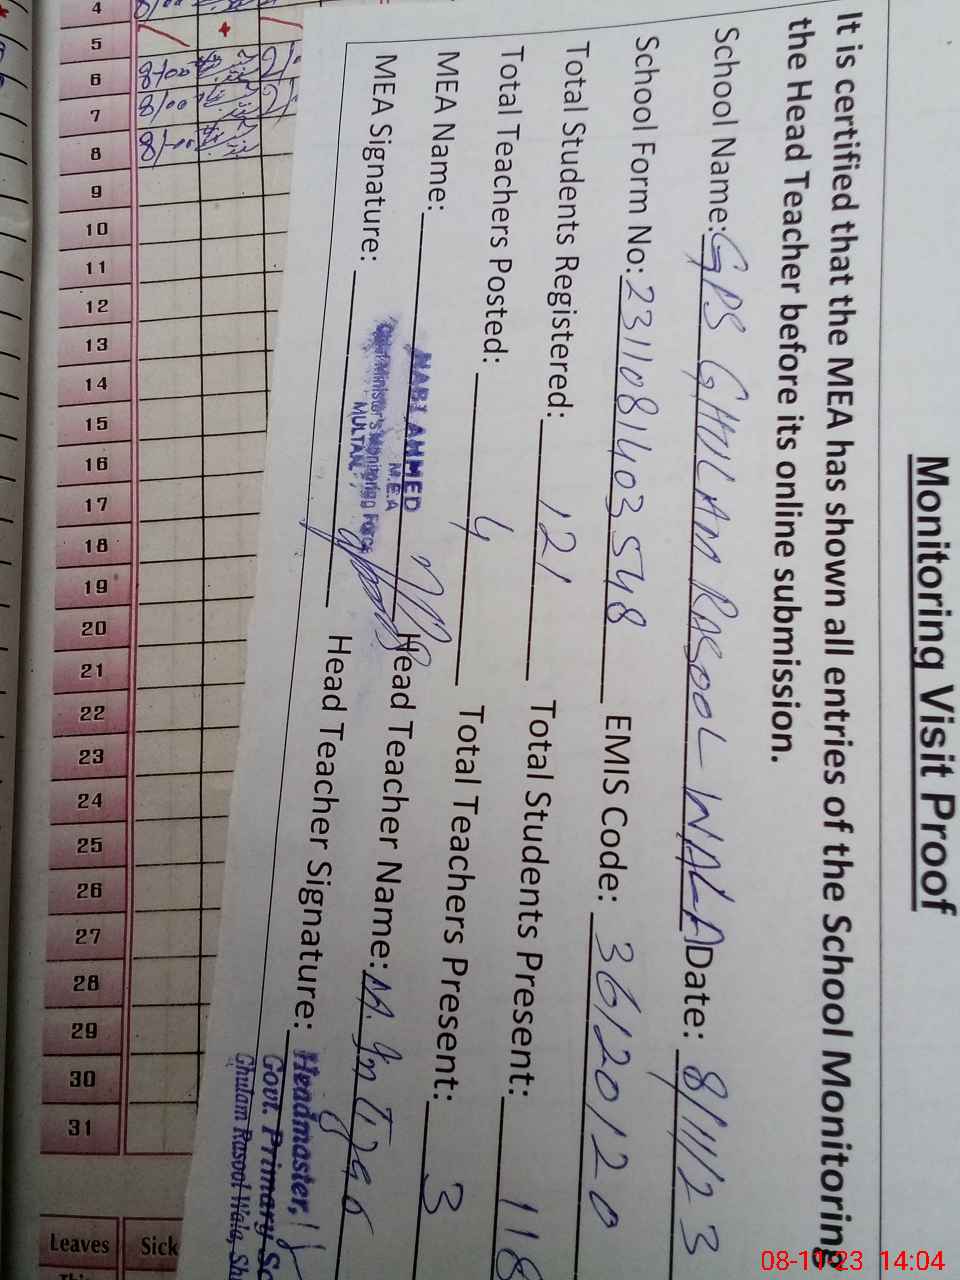 Monitoring Visit Proof
It is certified that the MEA has shown all entries of the School Monitoring
the Head Teacher before its online submission.
School Name: GPS GHULAM RASOOL WALA Date: 8/11/23
School Form No: 2311081403548 EMIS Code: 36120120
Total Students Registered: 121 Total Students Present: 118
Total Teachers Posted: 4 Total Teachers Present: 3
MEA Name: NABI AHMED Head Teacher Name: M.
M.E.A
MEA Signature: Chief Minister's Monitoring Force Head Teacher Signature: Headmaster,
MULTAN
Govt. Primary Sc
Ghulam Rasool Wala, Sh
4
5
6
7
8
9
10
11
12
13
14
15
16
17
18
19
20
21
22
23
24
25
26
27
28
29
30
31
Leaves Sick
08-11-23 14:04